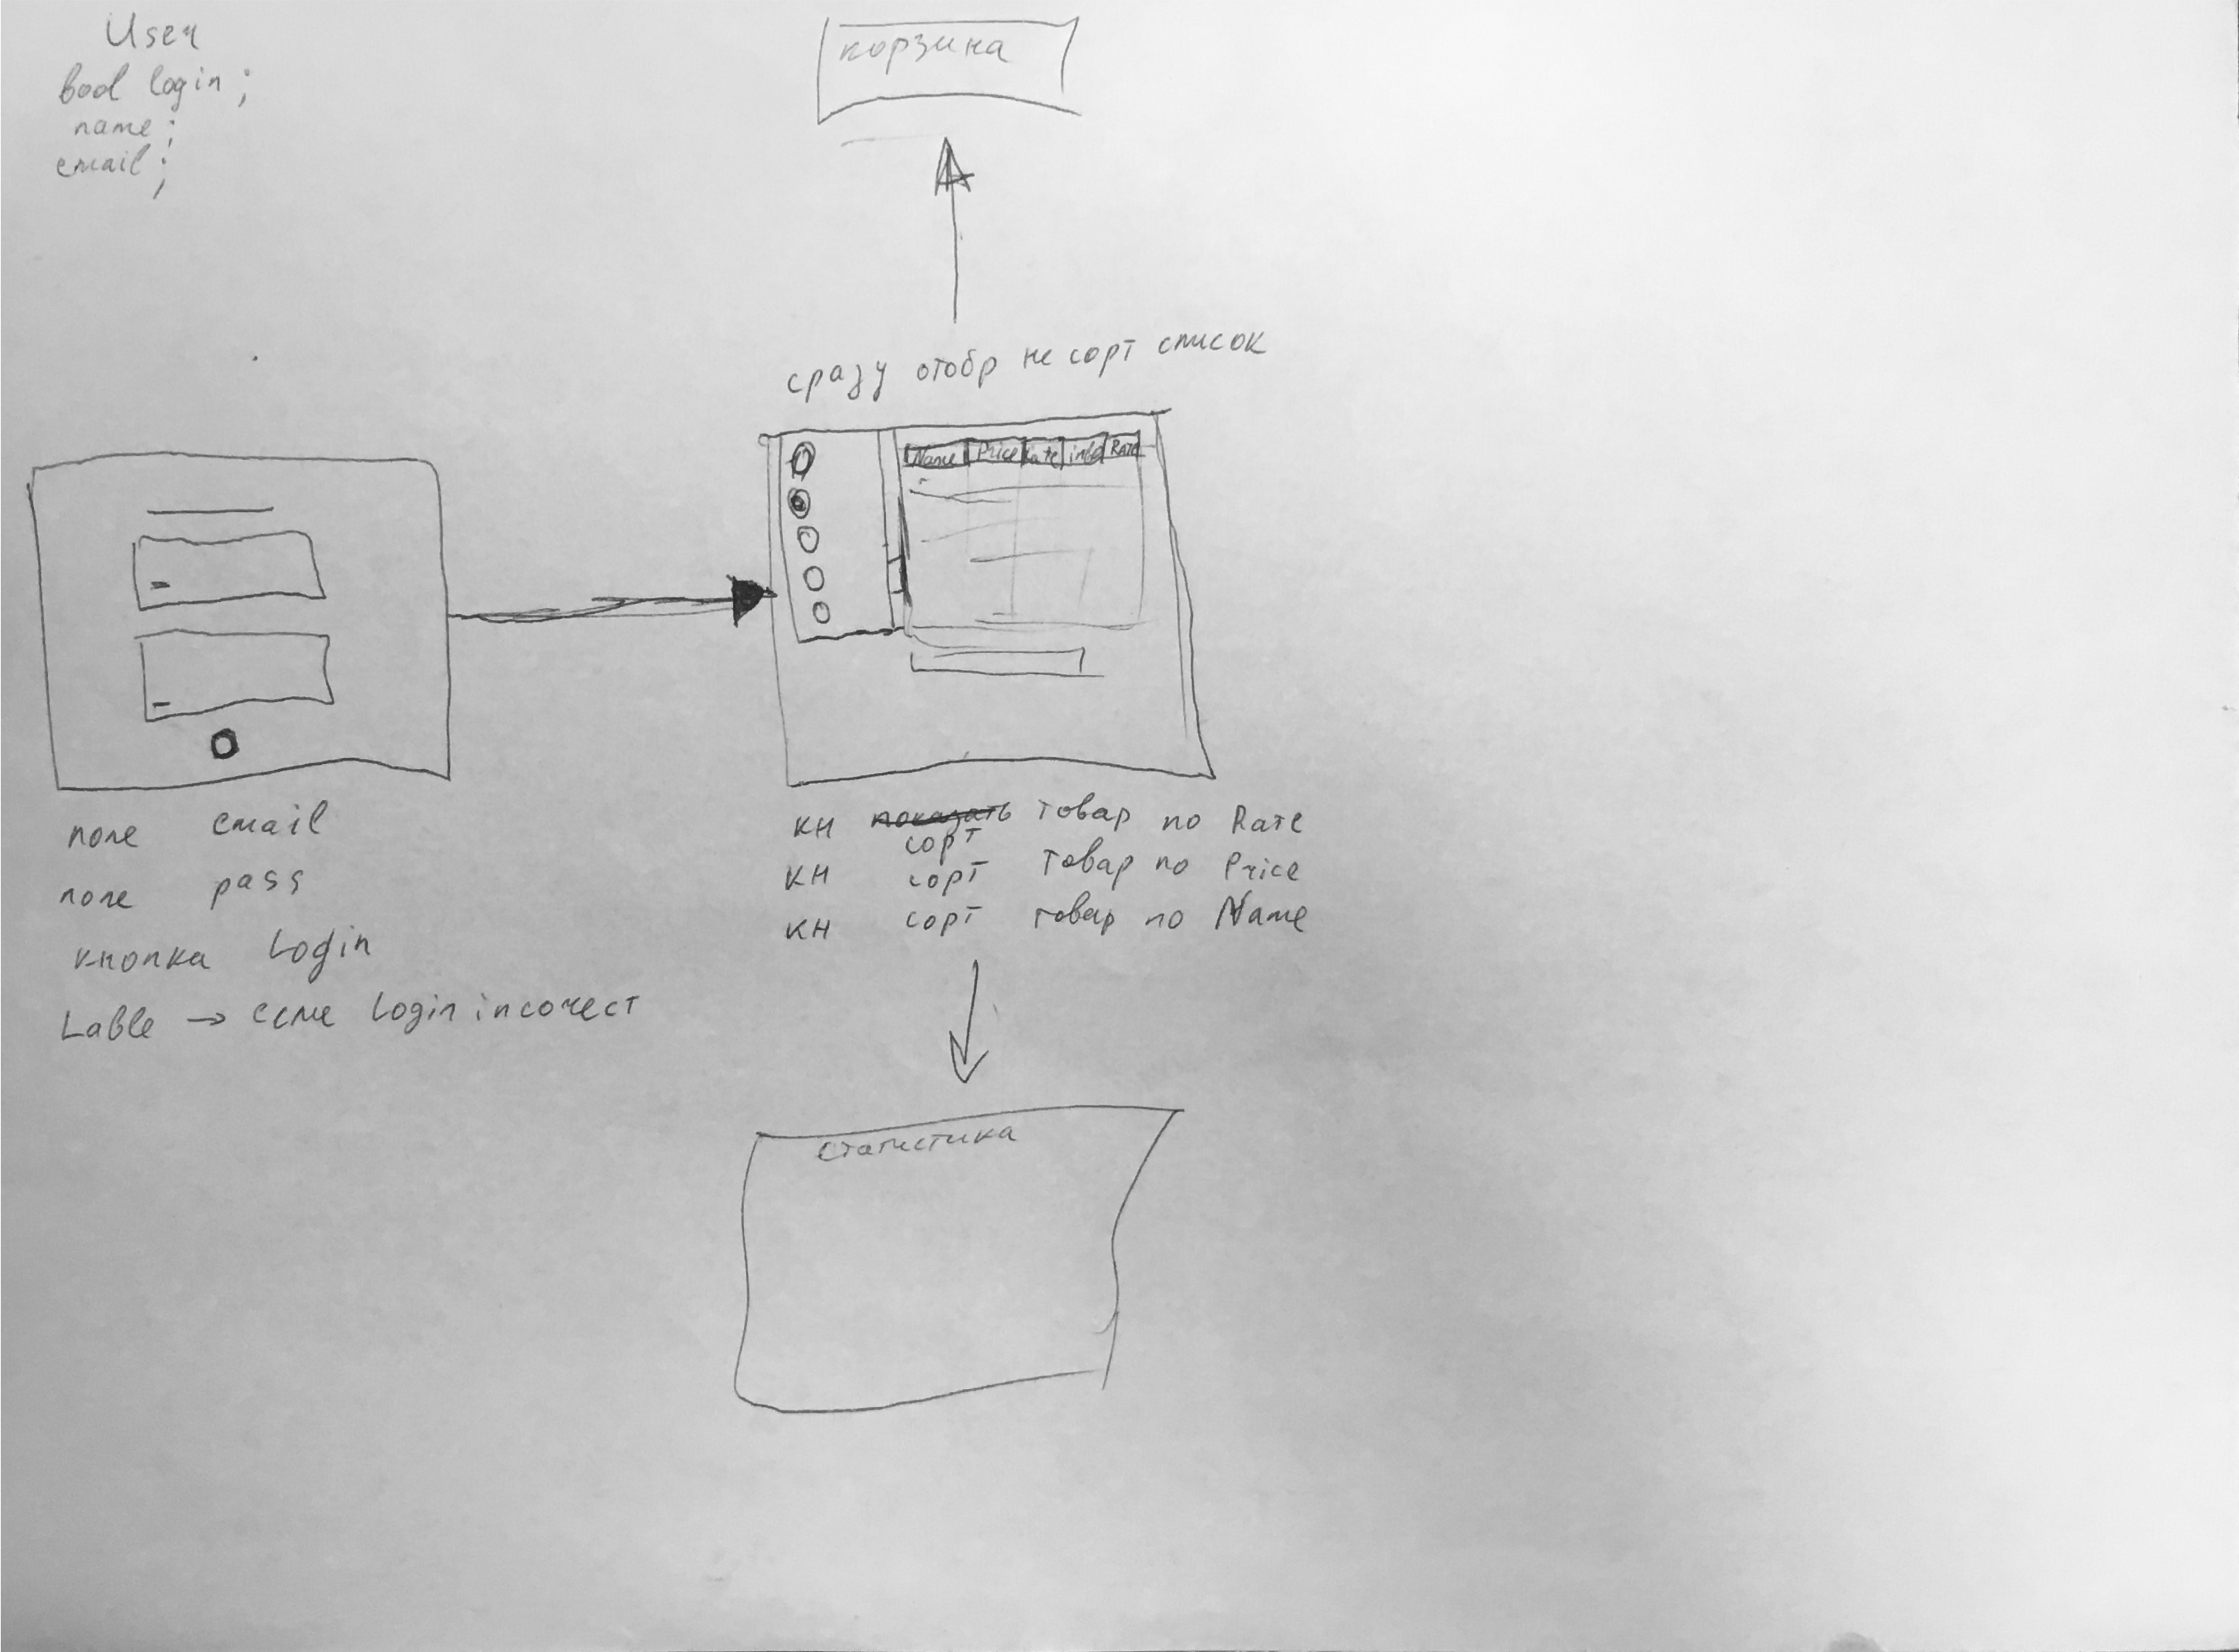 User
bool login;
name;
email;
корзина
сразу отобр не сорт список
Name Price info Rate
поле email
поле pass
кнопка Login
Lable → если Login incorect
кн показать товар по Rate
сорт
кн сорт товар по Price
кн сорт товар по Name
статистика